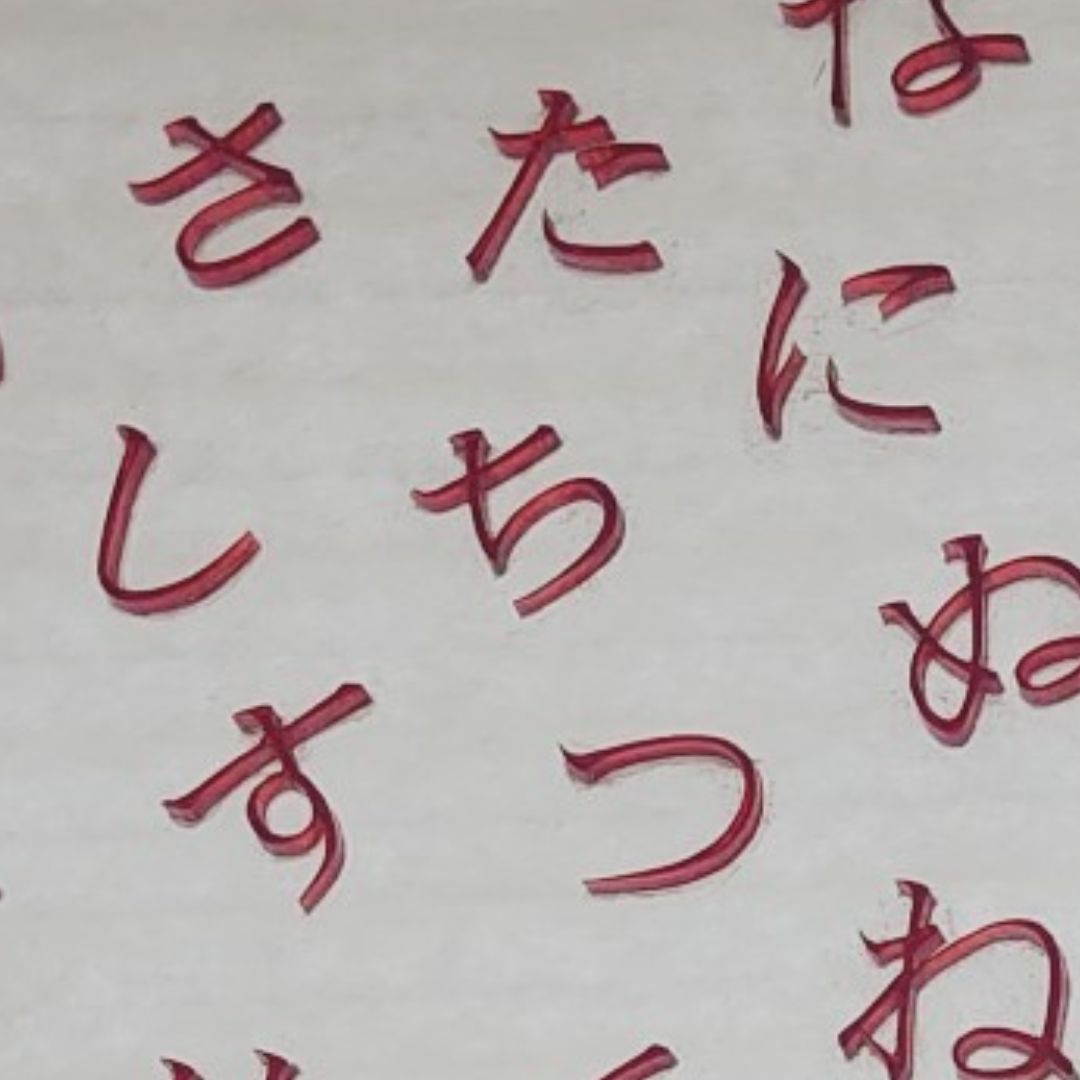 さ た な
し ち に
す つ ぬ
ね